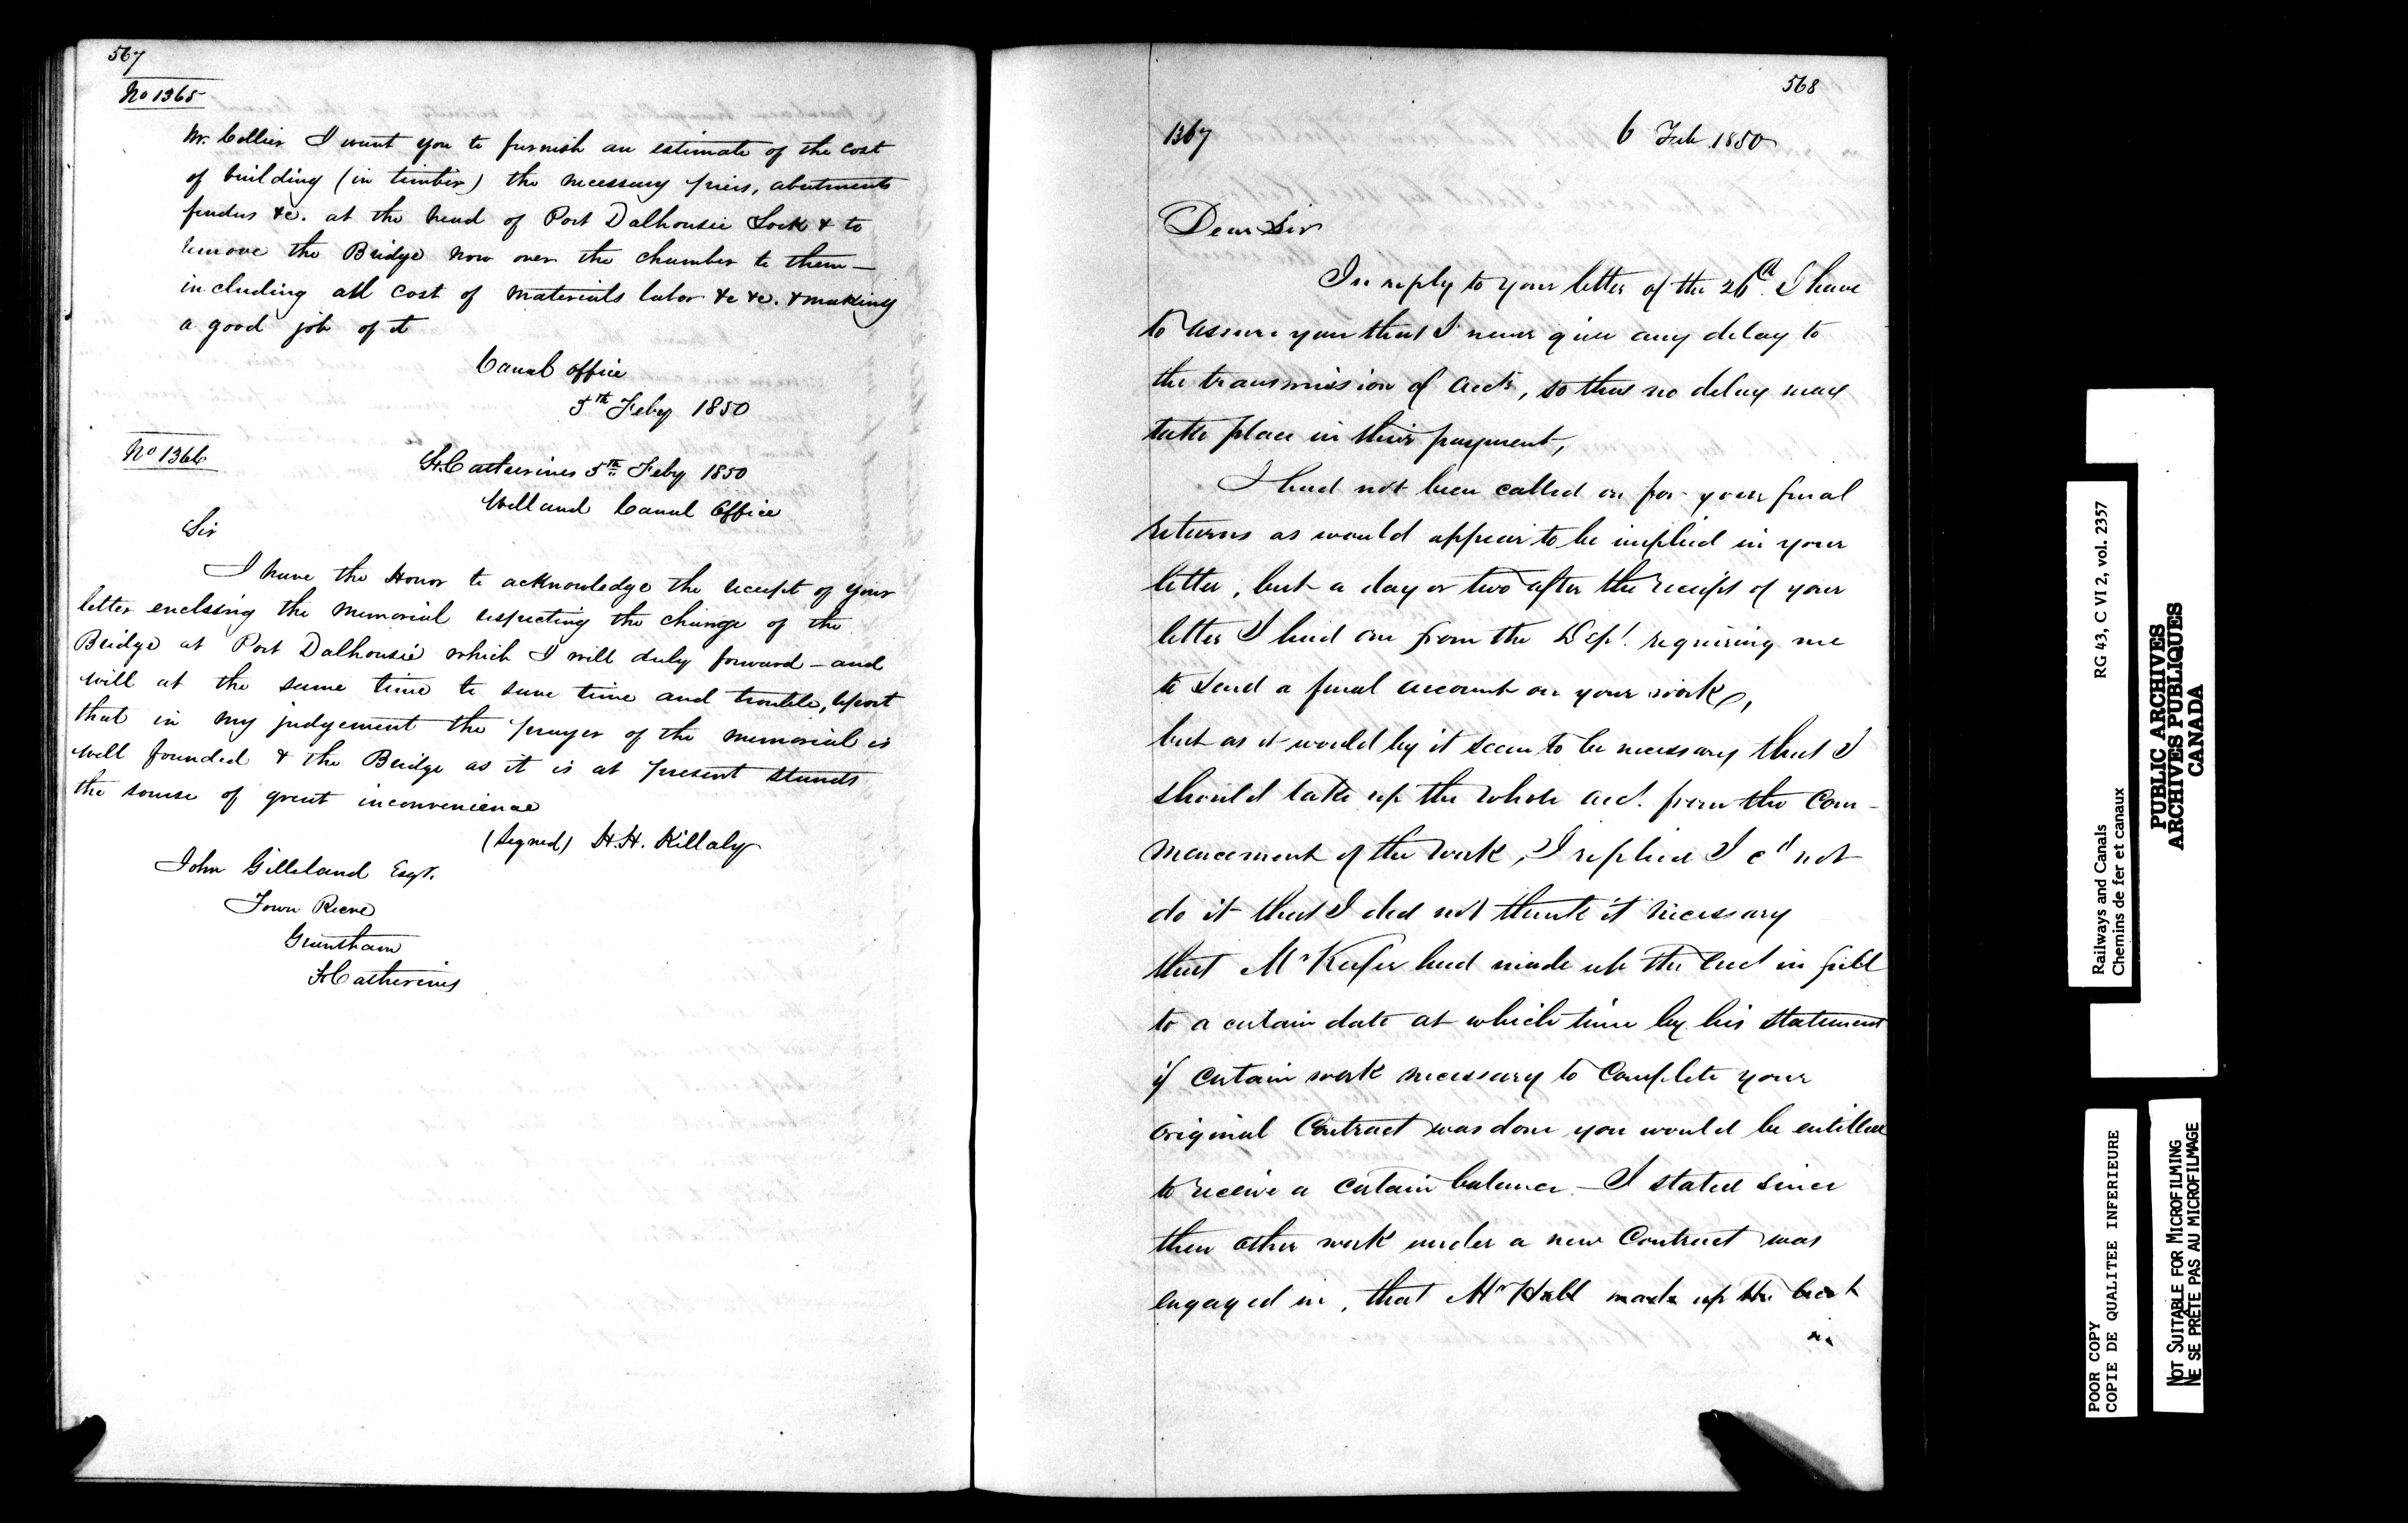 567
No 1365
Mr. Collier I want you to furnish an estimate of the cost
of building (in timber) the necessary piers, abutments
fendus &c. at the head of Port Dalhousie Lock & to
remove the Bridge now over the chamber to them —
including all cost of materials labor &c &c. & making
a good job of it
Canal office
5th Feby 1850
No 1366
St. Catherines 5th Feby 1850
Welland Canal Office
Sir
I have the Honor to acknowledge the receipt of your
letter enclosing the Memorial respecting the change of the
Bridge at Port Dalhousie which I will duly forward — and
will at the same time to save time and trouble, report
that in my judgement the prayer of the memorial is
well founded & the Bridge as it is at present stands
the sourse of great inconvenience
(Signed) H.H. Killaly
John Gilleland Esqr.
Town Reeve
Grantham
St Catherines
568
1367
6 Feb 1850
Dear Sir
In reply to your letter of the 26th. I have
to assure you that I never give any delay to
the transmission of accts, so that no delay may
take place in their payment,
I had not been called on for your final
returns as would appear to be implied in your
letter, but a day or two after the receipt of your
letter I had one from the Dept. requiring me
to send a final account on your work,
but as it would by it seem to be necessary that I
should take up the whole acct. from the Com-
mencement of the work, I replied I cd not
do it that I did not think it necessary
that Mr Keefer had made up the acct in full
to a certain date at which time by his statement
if certain work necessary to complete your
original Contract was done you would be entitled
to receive a certain balance — I stated since
then other work under a new Contract was
engaged in, that Mr Hall made up the
in
Railways and Canals RG 43, C VI 2, vol. 2357
Chemins de fer et canaux
PUBLIC ARCHIVES
ARCHIVES PUBLIQUES
CANADA
POOR COPY
COPIE DE QUALITEE INFERIEURE
NOT SUITABLE FOR MICROFILMING
NE SE PRÊTE PAS AU MICROFILMAGE